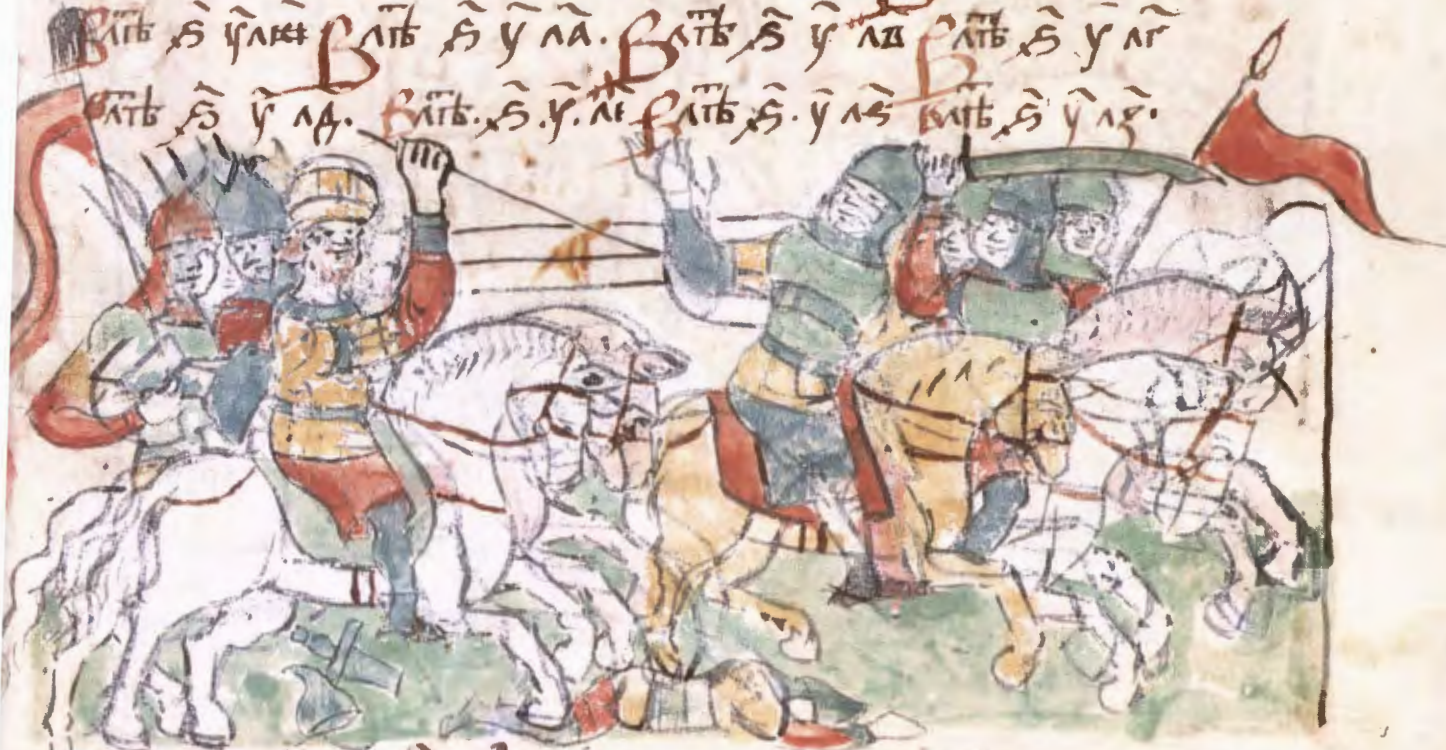 Влѣⷮ ҂ѕ҃ у҃л Влѣⷮ ҂ѕ҃ у҃ л҃а. Влѣⷮ ҂ѕ҃ у҃ л҃в Влѣⷮ ҂ѕ҃ у҃ л҃г
Влѣⷮ ҂ѕ҃ у҃ л҃д. Влѣⷮ. ҂ѕ҃. у҃. л҃е Влѣⷮ ҂ѕ҃. у҃ л҃ѕ Влѣⷮ ҂ѕ҃ у҃ л҃з.